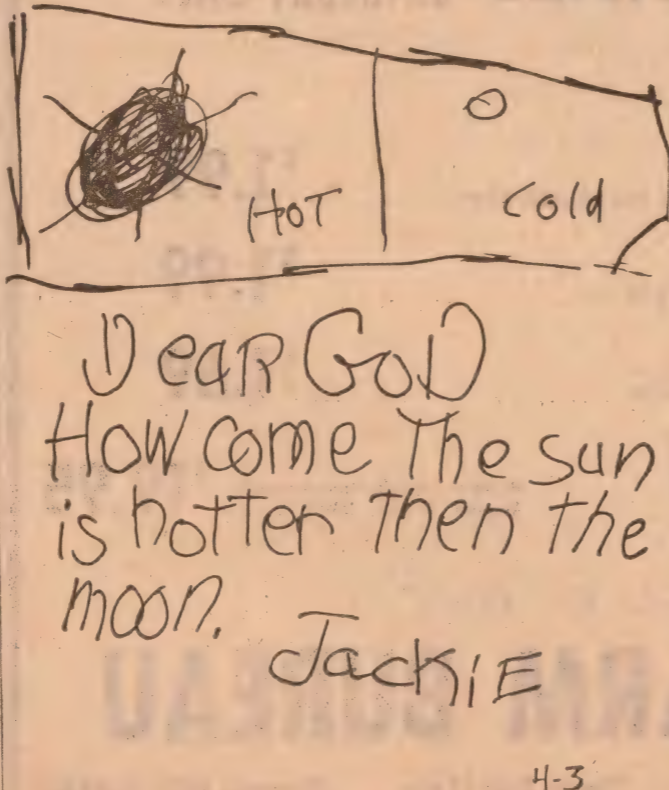 HOT
Cold
Dear GoD
How come The sun
is hotter then the
moon.
JackiE
4-3